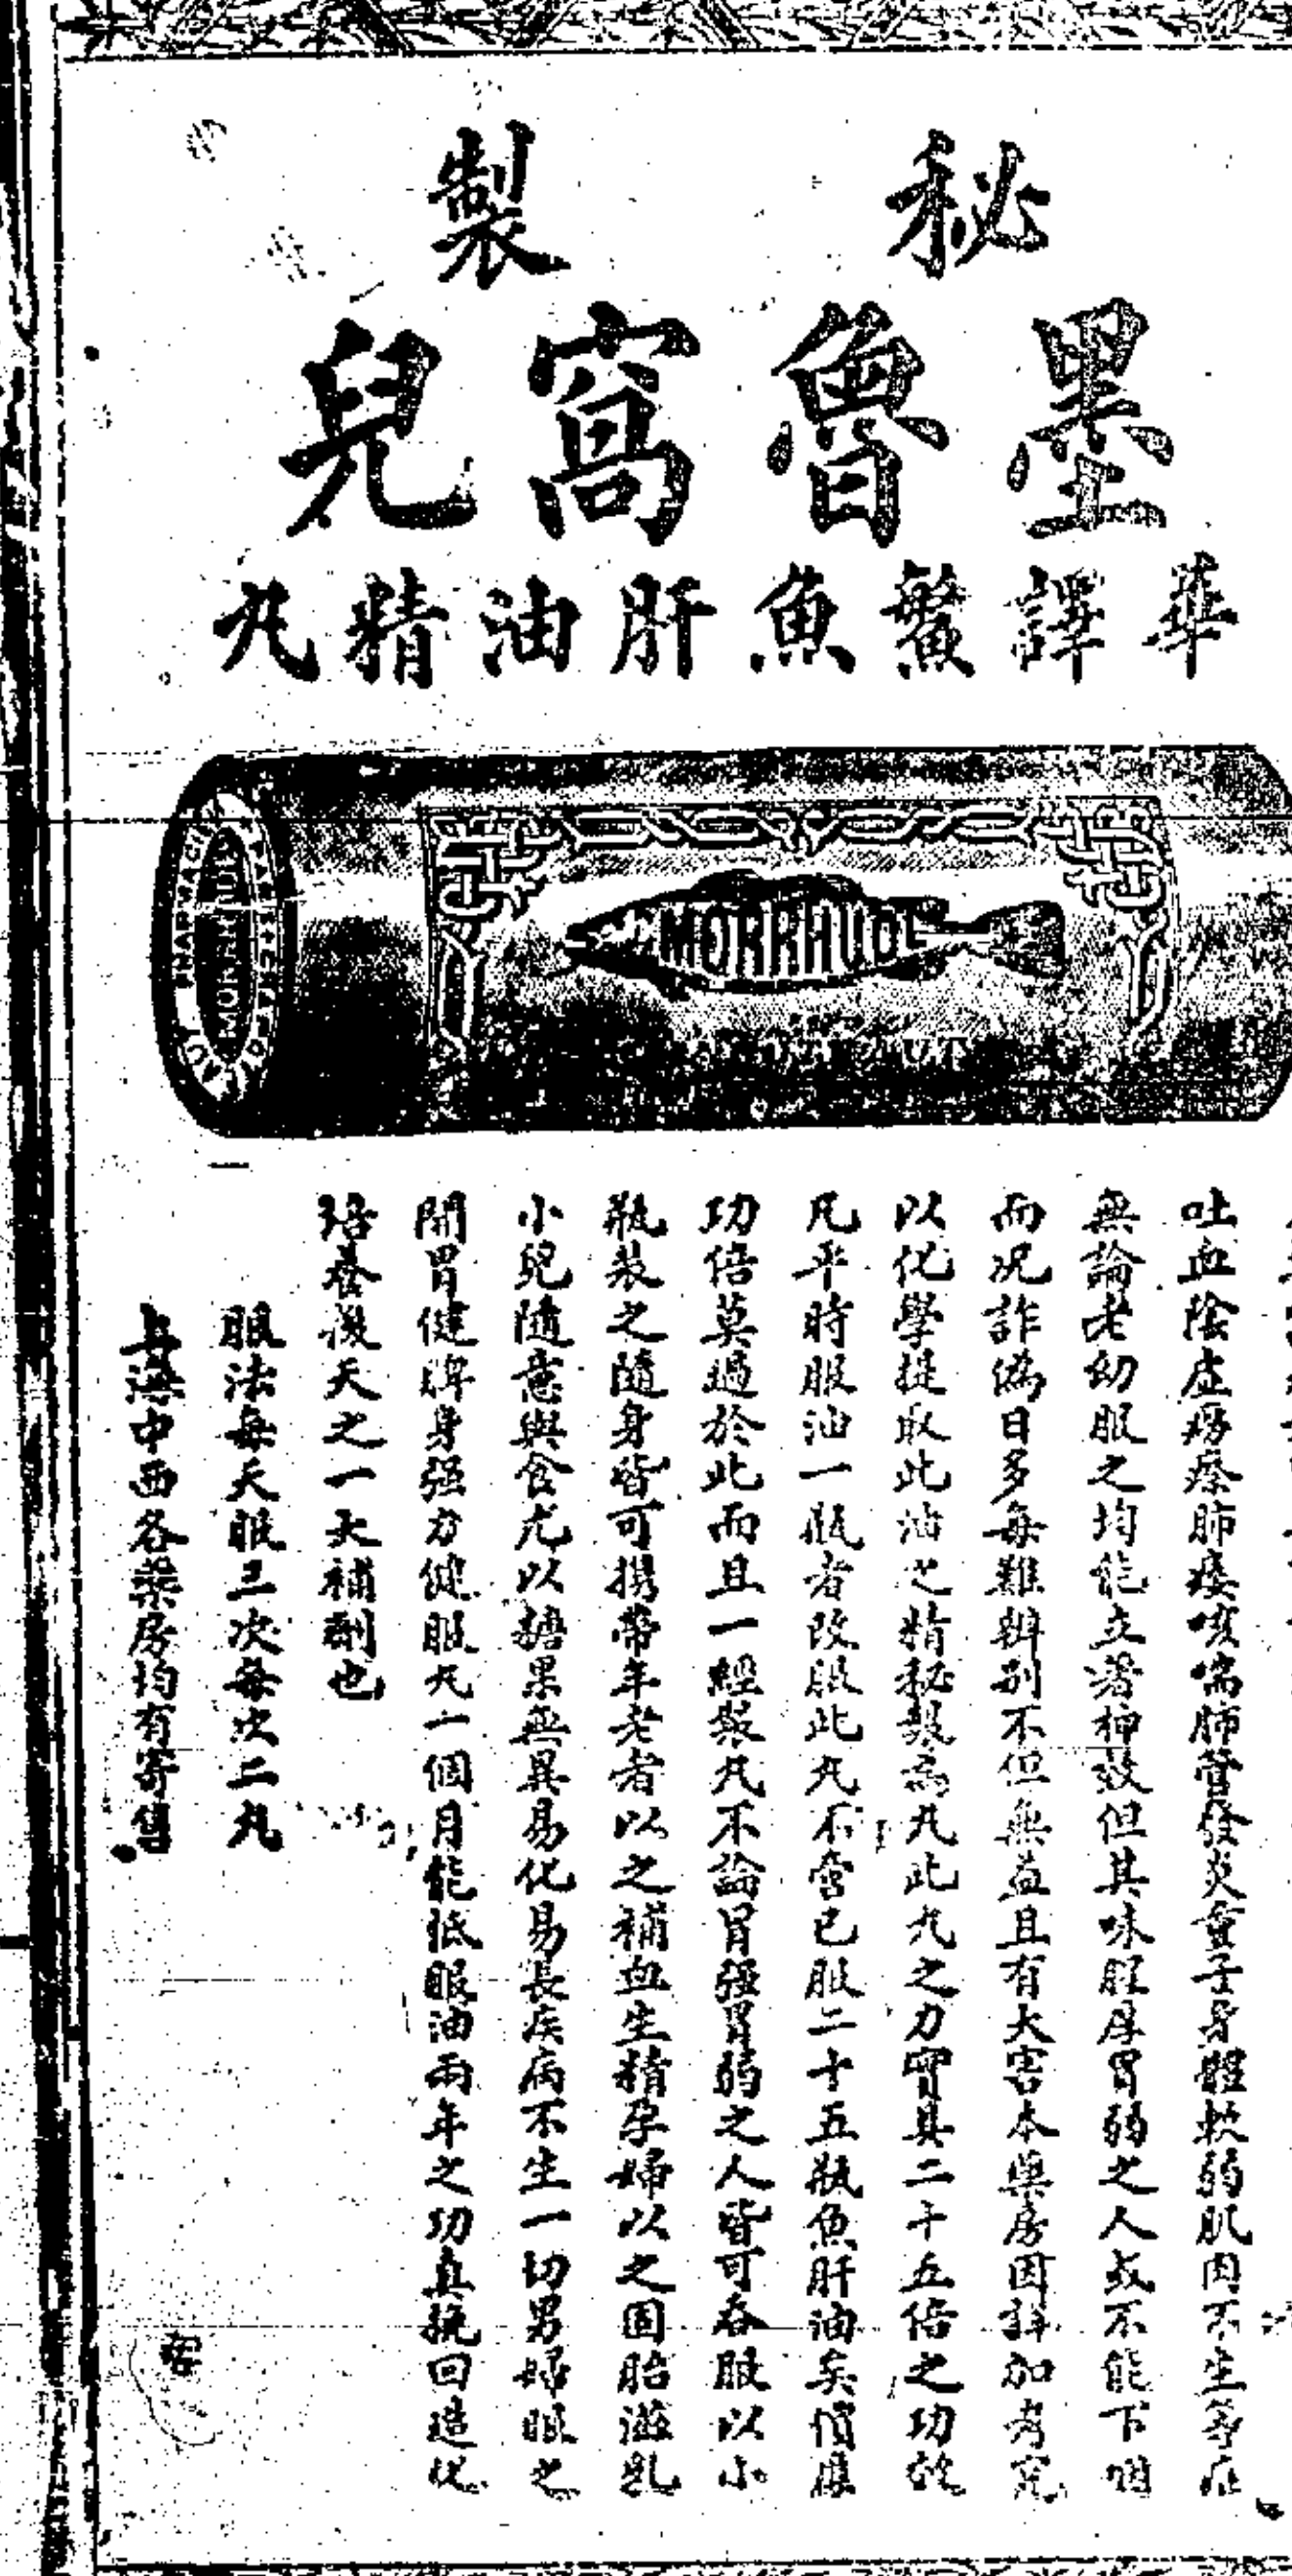 秘製
墨魯窩兒
華譯鰵魚肝油精丸
MORRHUOL
MORRHUOL
吐血陰虛癆瘵肺痿咳喘肺管發炎童子身體軟弱肌肉不生等症
無論老幼服之均能立著神效但其味腥厚胃弱之人或不能下咽
而况詐偽日多每難辨別不但無益且有大害本藥房因詳加考究
以化學提取此油之精秘製為丸此丸之力實具二十五倍之功故
凡平時服油一瓶者改服此丸不啻已服二十五瓶魚肝油矣價廉
功倍莫過於此而且一經製丸不論胃强胃弱之人皆可吞服以小
瓶裝之隨身皆可携帶年老者以之補血生精孕婦以之固胎滋乳
小兒隨意與食尤以糖果無異易化易長疾病不生一切男婦服之
開胃健脾身强力健服丸一個月能抵服油兩年之功真挽回造化
培養後天之一大補劑也
服法每天服三次每次二丸
上海中西各藥房均有寄售